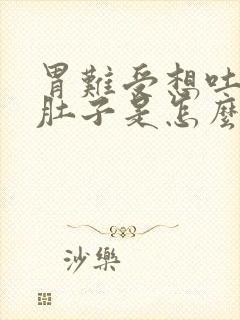 胃難受想吐
肚子是怎麼
沙樂